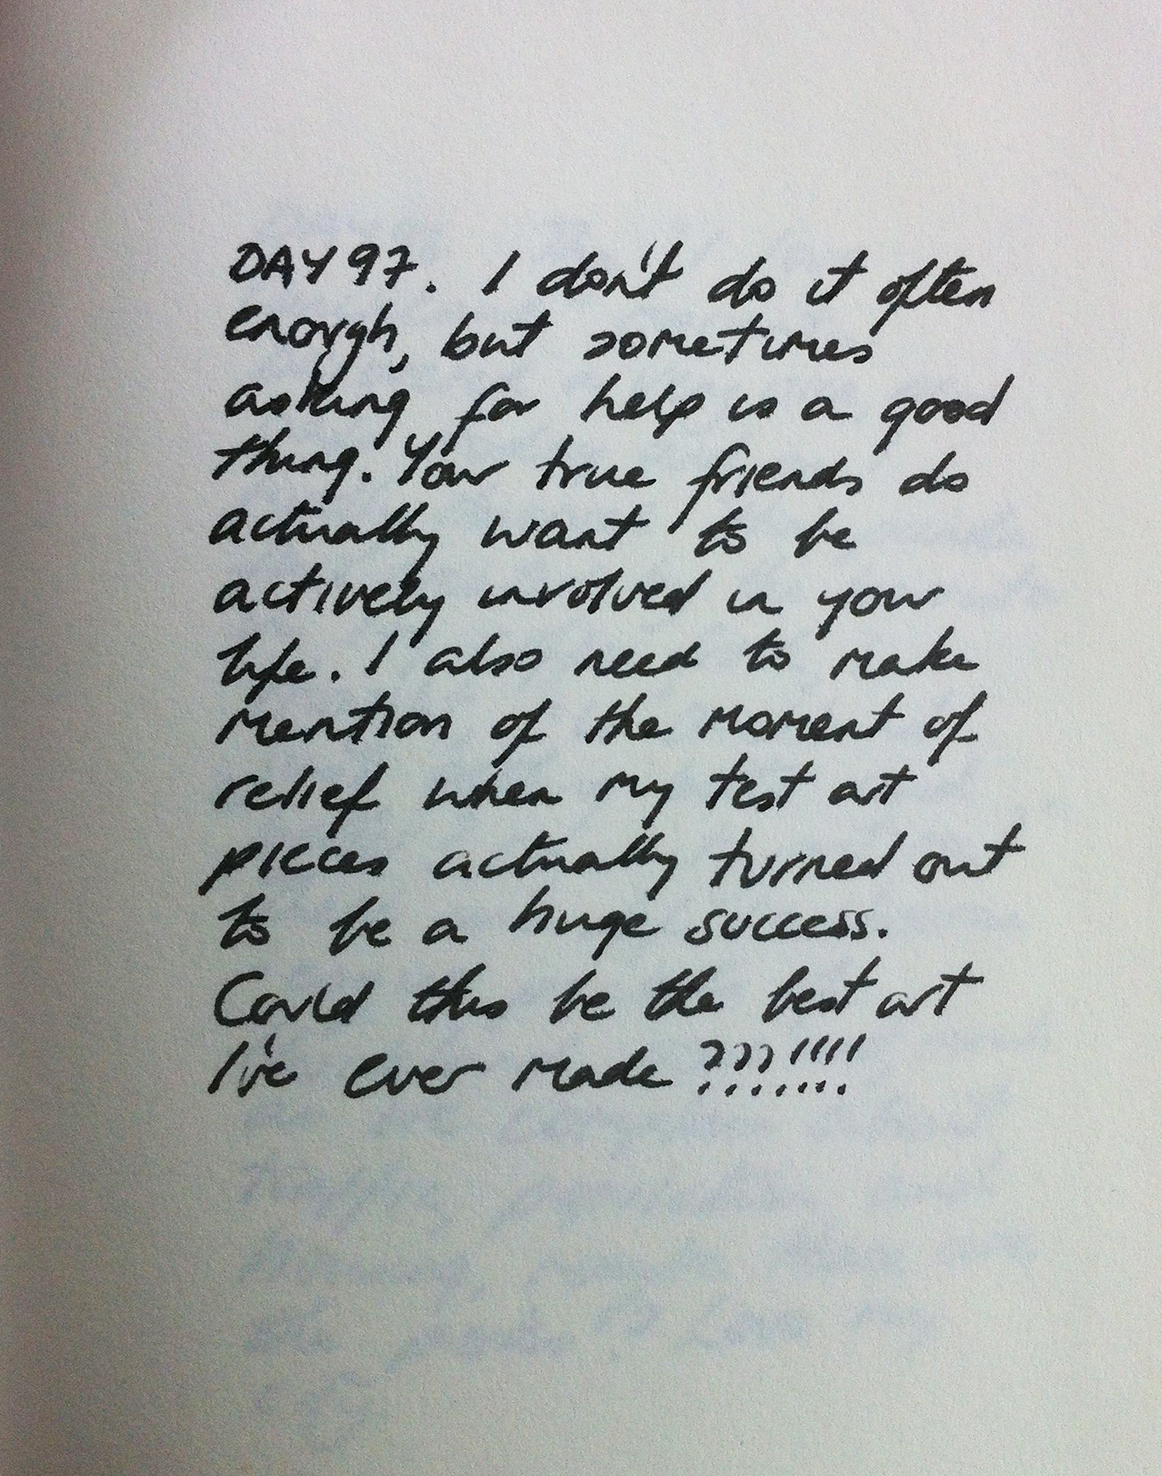 DAY 97. I don't do it often
enough, but sometimes
asking for help is a good
thing. Your true friends do
actually want to be
actively involved in your
life. I also need to make
mention of the moment of
relief when my test art
pieces actually turned out
to be a huge success.
Could this be the best art
I've ever made ???!!!!